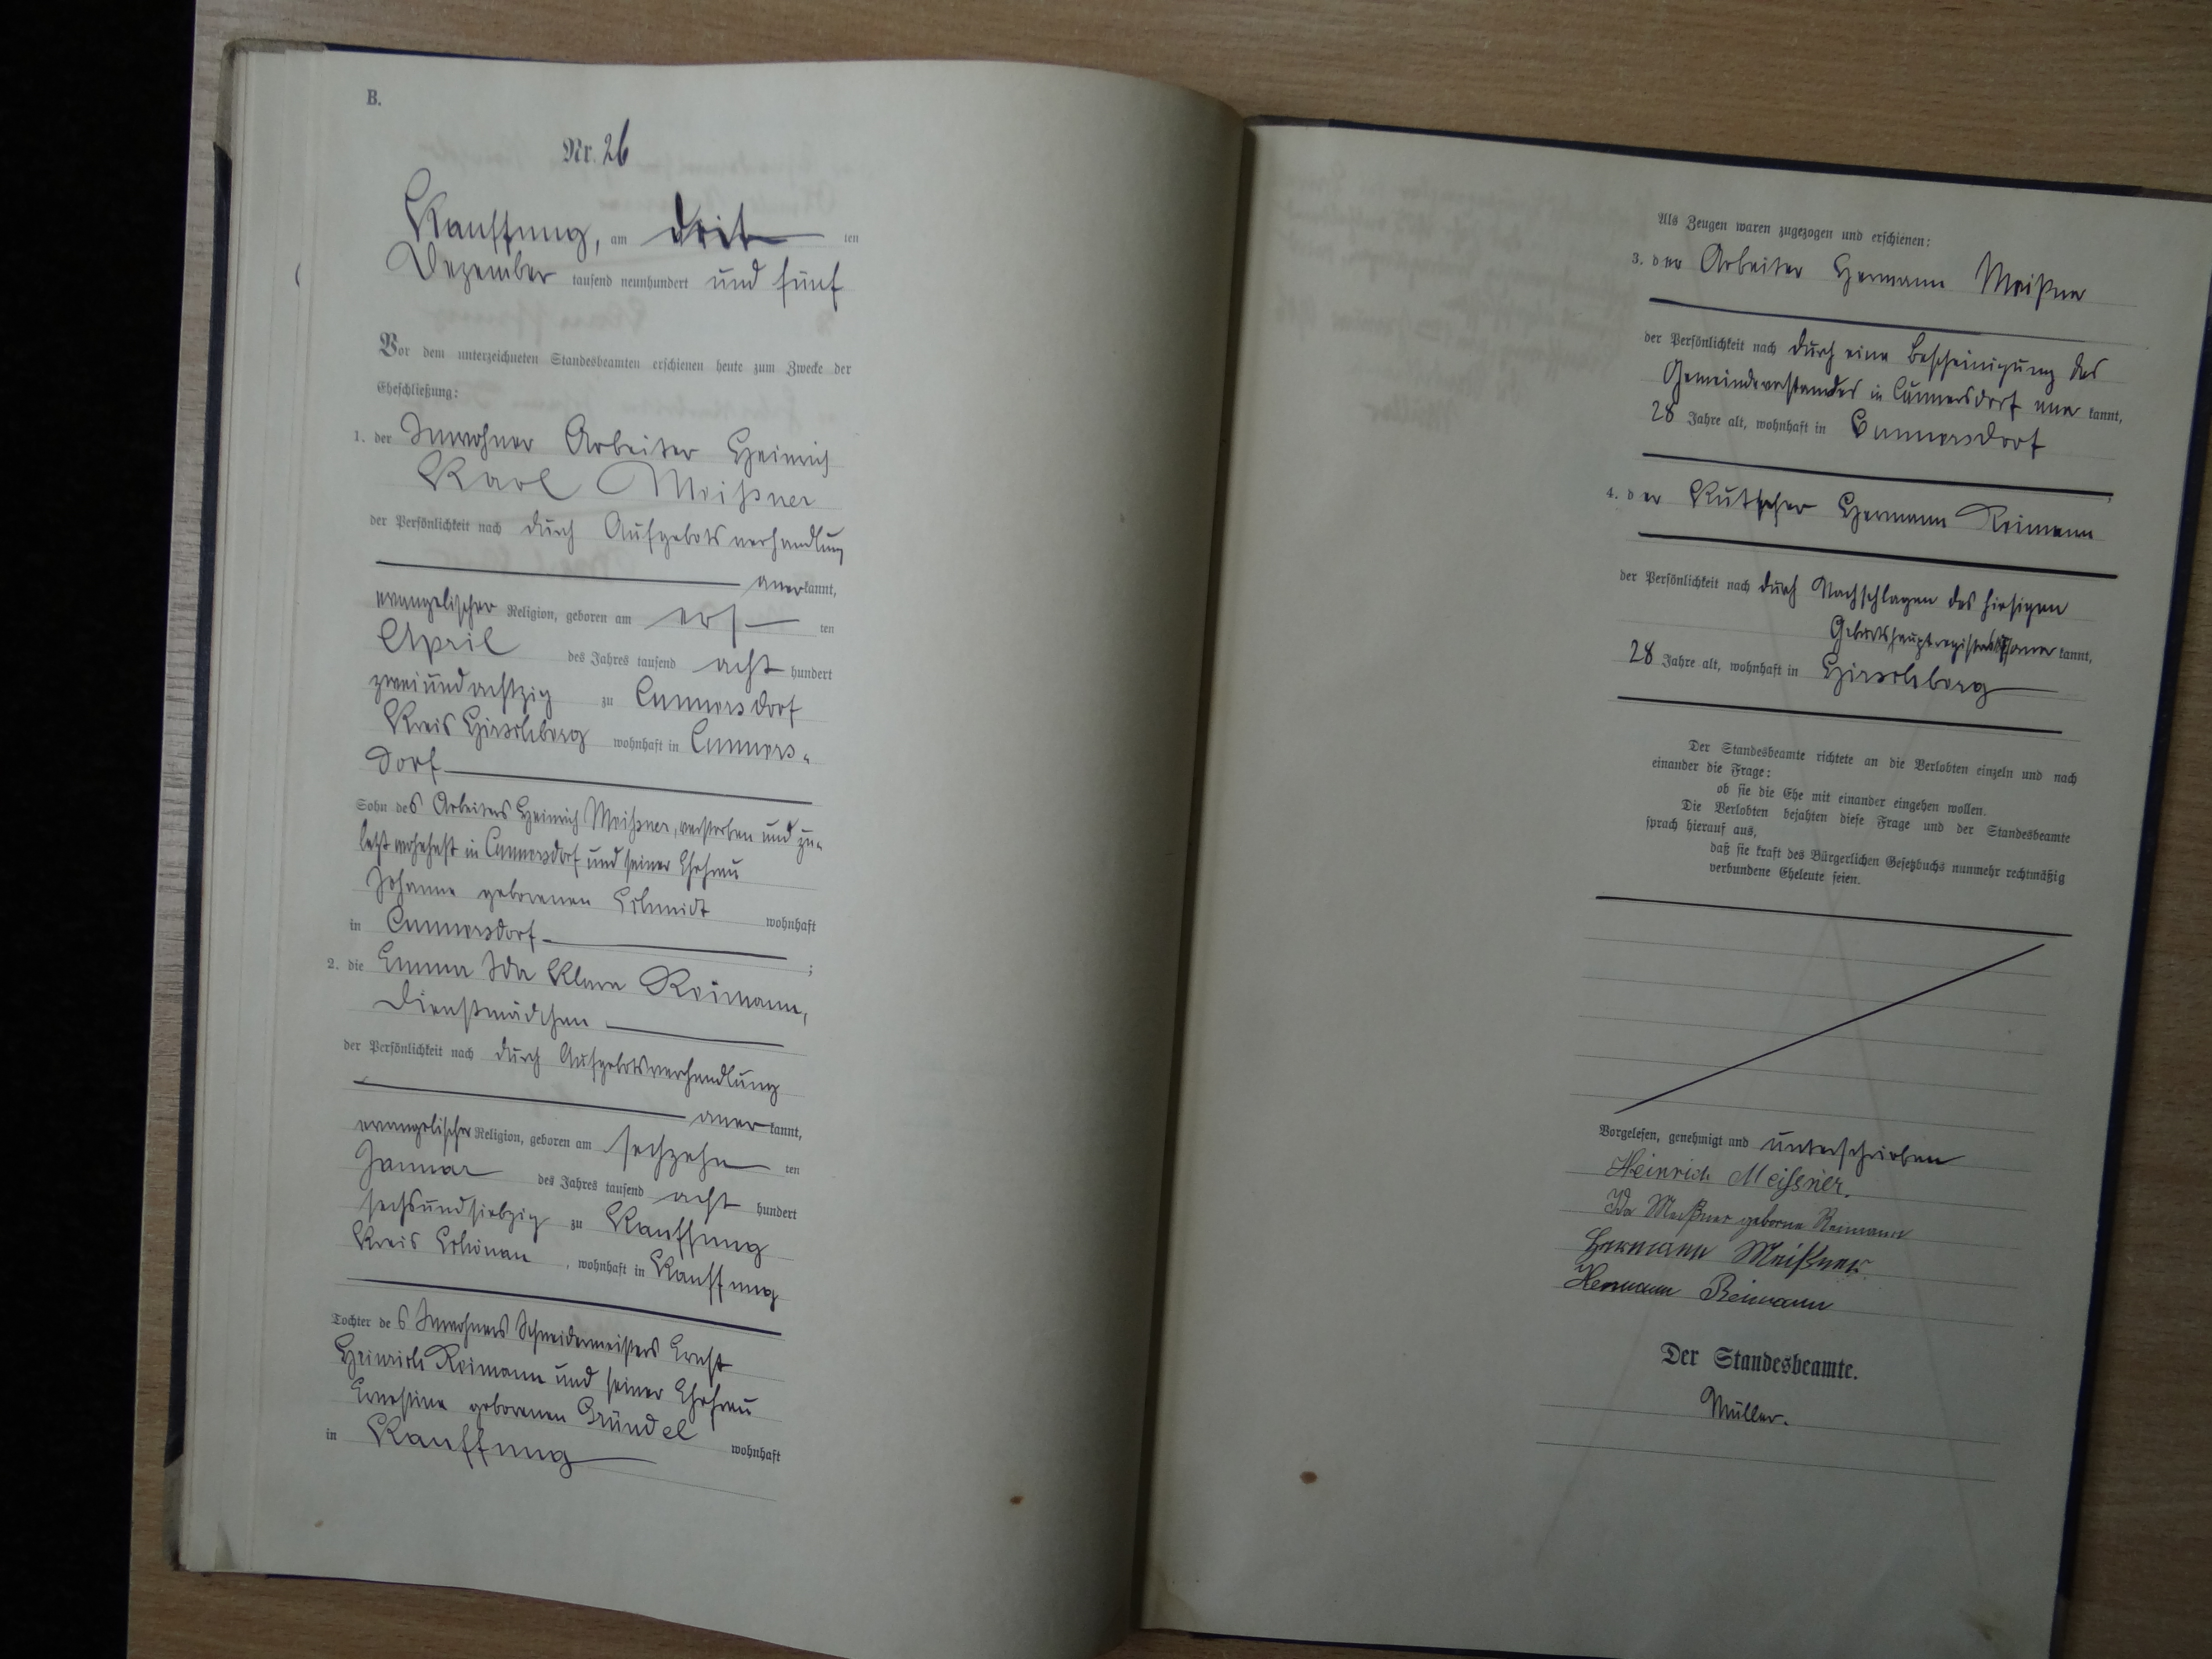 B.
Nr. 26
Kauffung, am drit ten
Dezember tausend neunhundert und fünf
Vor dem unterzeichneten Standesbeamten erschienen heute zum Zwecke der
Eheschließung:
1. der Inwohner Arbeiter Heinrich
Karl Meißner
der Persönlichkeit nach durch Aufgebotsverhandlung
anerkannt,
evangelischer Religion, geboren am ers ten
April des Jahres tausend acht hundert
zweiundachtzig zu Cunnersdorf
Kreis Hirschberg wohnhaft in Cunners-
dorf
Sohn des Arbeiters Heinrich Meißner, verstorben und zu-
letzt wohnhaft in Cunnersdorf und seiner Ehefrau
Johanne geborenen Schmidt wohnhaft
in Cunnersdorf ;
2. die Emma Ida Klara Reimann,
Dienstmädchen
der Persönlichkeit nach durch Aufgebotsverhandlung
anerkannt,
evangelischer Religion, geboren am sechzehn ten
Januar des Jahres tausend acht hundert
sechsundsiebzig zu Kauffung
Kreis Schönau, wohnhaft in Kauffung
Tochter des Inwohners Schneidermeisters Ernst
Heinrich Reimann und seiner Ehefrau
Ernestine geborenen Gründel wohnhaft
in Kauffung
Als Zeugen waren zugezogen und erschienen:
3. der Arbeiter Hermann Meißner
der Persönlichkeit nach durch eine Bescheinigung des
Gemeindevorstandes in Cunnersdorf anerkannt,
28 Jahre alt, wohnhaft in Cunnersdorf
;
4. der Kutscher Hermann Reimann
der Persönlichkeit nach durch Nachschlagen des hiesigen
Geburtshauptregisters anerkannt,
28 Jahre alt, wohnhaft in Hirschberg
Der Standesbeamte richtete an die Verlobten einzeln und nach
einander die Frage:
ob sie die Ehe mit einander eingehen wollen.
Die Verlobten bejahten diese Frage und der Standesbeamte
sprach hierauf aus,
daß sie kraft des Bürgerlichen Gesetzbuchs nunmehr rechtmäßig
verbundene Eheleute seien.
Vorgelesen, genehmigt und unterschrieben
Heinrich Meissner.
Ida Meißner geborne Reimann
Hermann Meißner.
Hermann Reimann
Der Standesbeamte.
Müller.